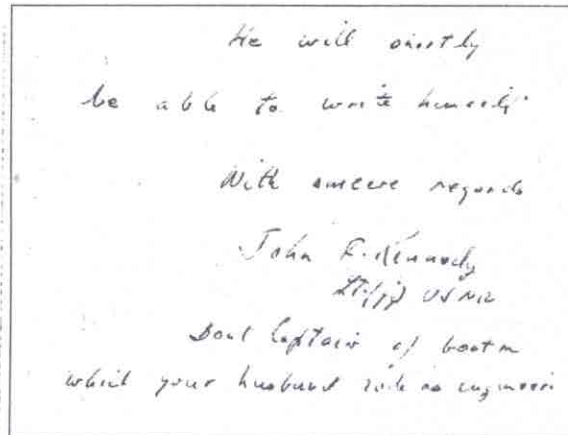 He will shortly
be able to write himself.
With sincere regards
John F. Kennedy
Lt.(jg) USNR
Boat Captain of boat on
which your husband rode as engineer